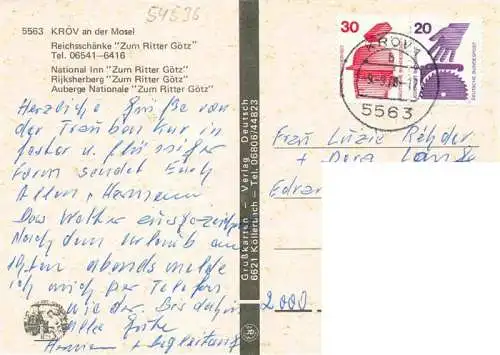 54536
5563 KRÖV an der Mosel
Reichsschänke "Zum Ritter Götz"
Tel. 06541-6416
National Inn "Zum Ritter Götz"
Rijksherberg "Zum Ritter Götz"
Auberge Nationale "Zum Ritter Götz"
Herzliche Grüße von
der Trauben Kur in
fester u. flüssiger
Form sendet Euch
Allen, Hermann
Das Wetter ausgezeich
Nach dem Urlaub am
abends melde
ich mich per Telefon
wieder. Bis dahin
alle Gute
+ Begleitung
Grußkarten - Verlag Deutsch
6621 Köllerbach - Tel. 06806/44823
30
20
DEUTSCHE BUNDESPOST
KRÖV
b
5563
Frau Luzie Rehder
+ Dora
2000